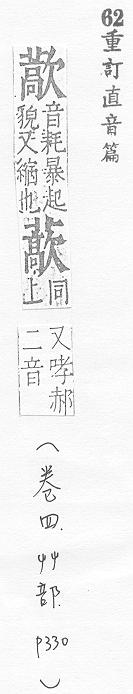 62
重訂直音篇
歊
音耗暴起
貌又縮也
歊
同
上
又哮郝
二音
(卷四.艸部.P330)